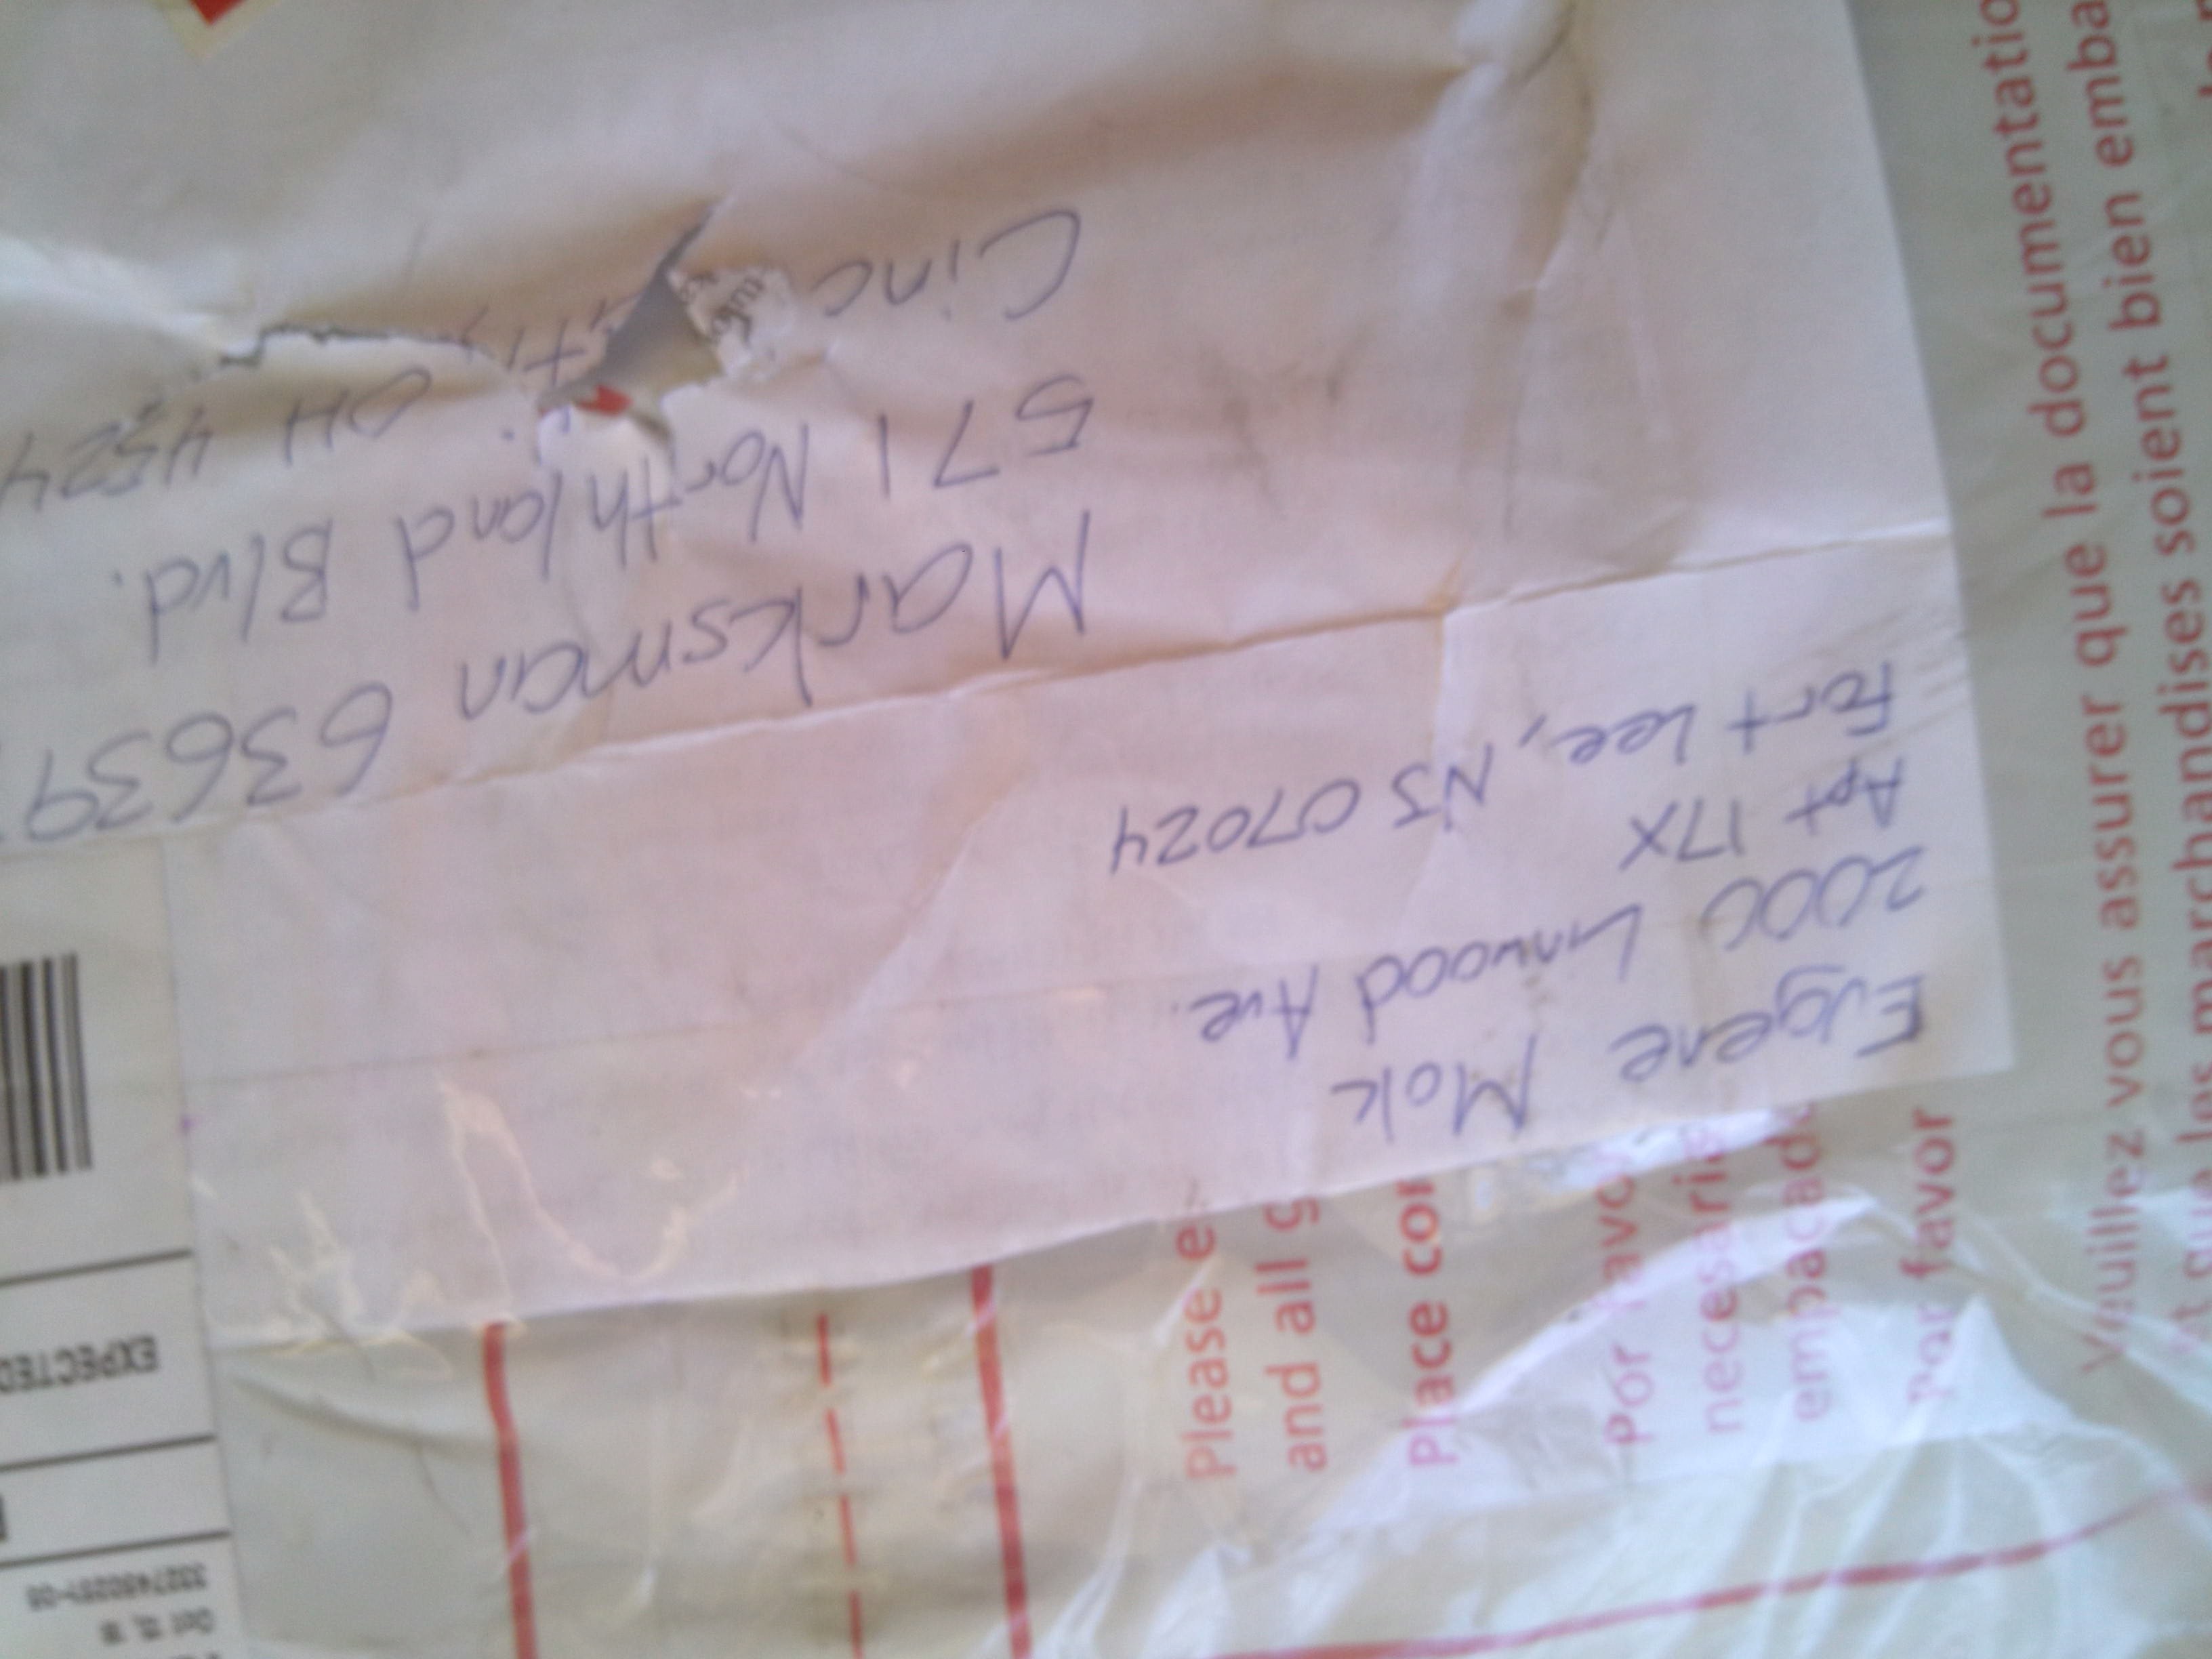 Eugene Mok
2000 Linwood Ave.
Apt 17X
Fort Lee, NJ 07024
Marksman 63639
571 Northland Blvd.
Cinc
OH 4524
EXPECTED
Please e
and all g
Place cor
Por favo
necesari
empacad
Por favor
Veuillez vous assurer que la documentatio
et que les marchandises soient bien emba